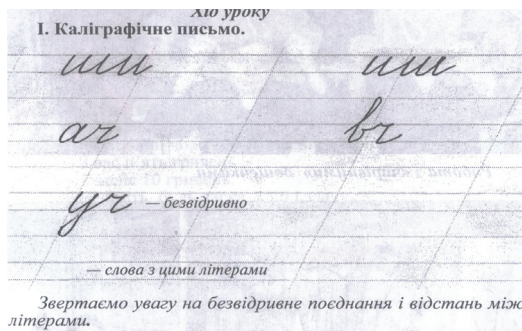 Хід уроку
І. Каліграфічне письмо.
ши иш
ач вч
уч — безвідривно
— слова з цими літерами
Звертаємо увагу на безвідривне поєднання і відстань між
літерами.